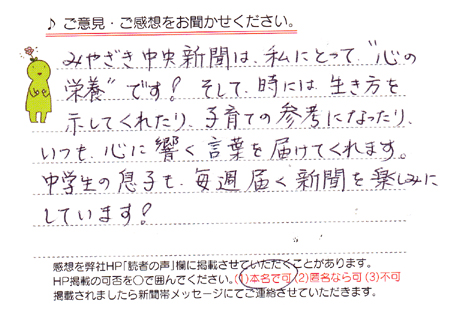 ♪ ご意見・ご感想をお聞かせください。
みやざき中央新聞は、私にとって、“心の
栄養”です！そして、時には、生き方を
示してくれたり、子育ての参考になったり、
いつも、心に響く言葉を届けてくれます。
中学生の息子も、毎週届く新聞を楽しみに
しています！
感想を弊社HP「読者の声」欄に掲載させていただくことがあります。
HP掲載の可否を〇で囲んでください。(1)本名で可 (2)匿名なら可 (3)不可
掲載されましたら新聞帯メッセージにてご連絡させていただきます。